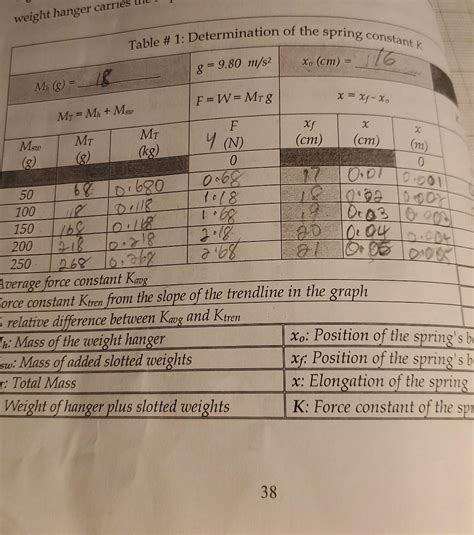 weight hanger carries the
Table # 1: Determination of the spring constant K
Mh (g) = 18 g = 9.80 m/s² xo (cm) = 16
MT = Mh + Msw F = W = MT g x = xf - xo
Msw (g) MT (g) MT (kg) y F (N) xf (cm) x (cm) x (m)
0 0
50 68 0.680 0.68 17 0.01 0.001
100 118 0.118 1.18 18
150 168 0.168 1.68 19 0.03
200 218 0.218 2.18 20 0.04 0.004
250 268 0.268 2.68 21 0.05 0.005
Average force constant Kavg
Force constant Ktren from the slope of the trendline in the graph
relative difference between Kavg and Ktren
h: Mass of the weight hanger xo: Position of the spring's b
sw: Mass of added slotted weights xf: Position of the spring's b
: Total Mass x: Elongation of the spring
Weight of hanger plus slotted weights K: Force constant of the spr
38